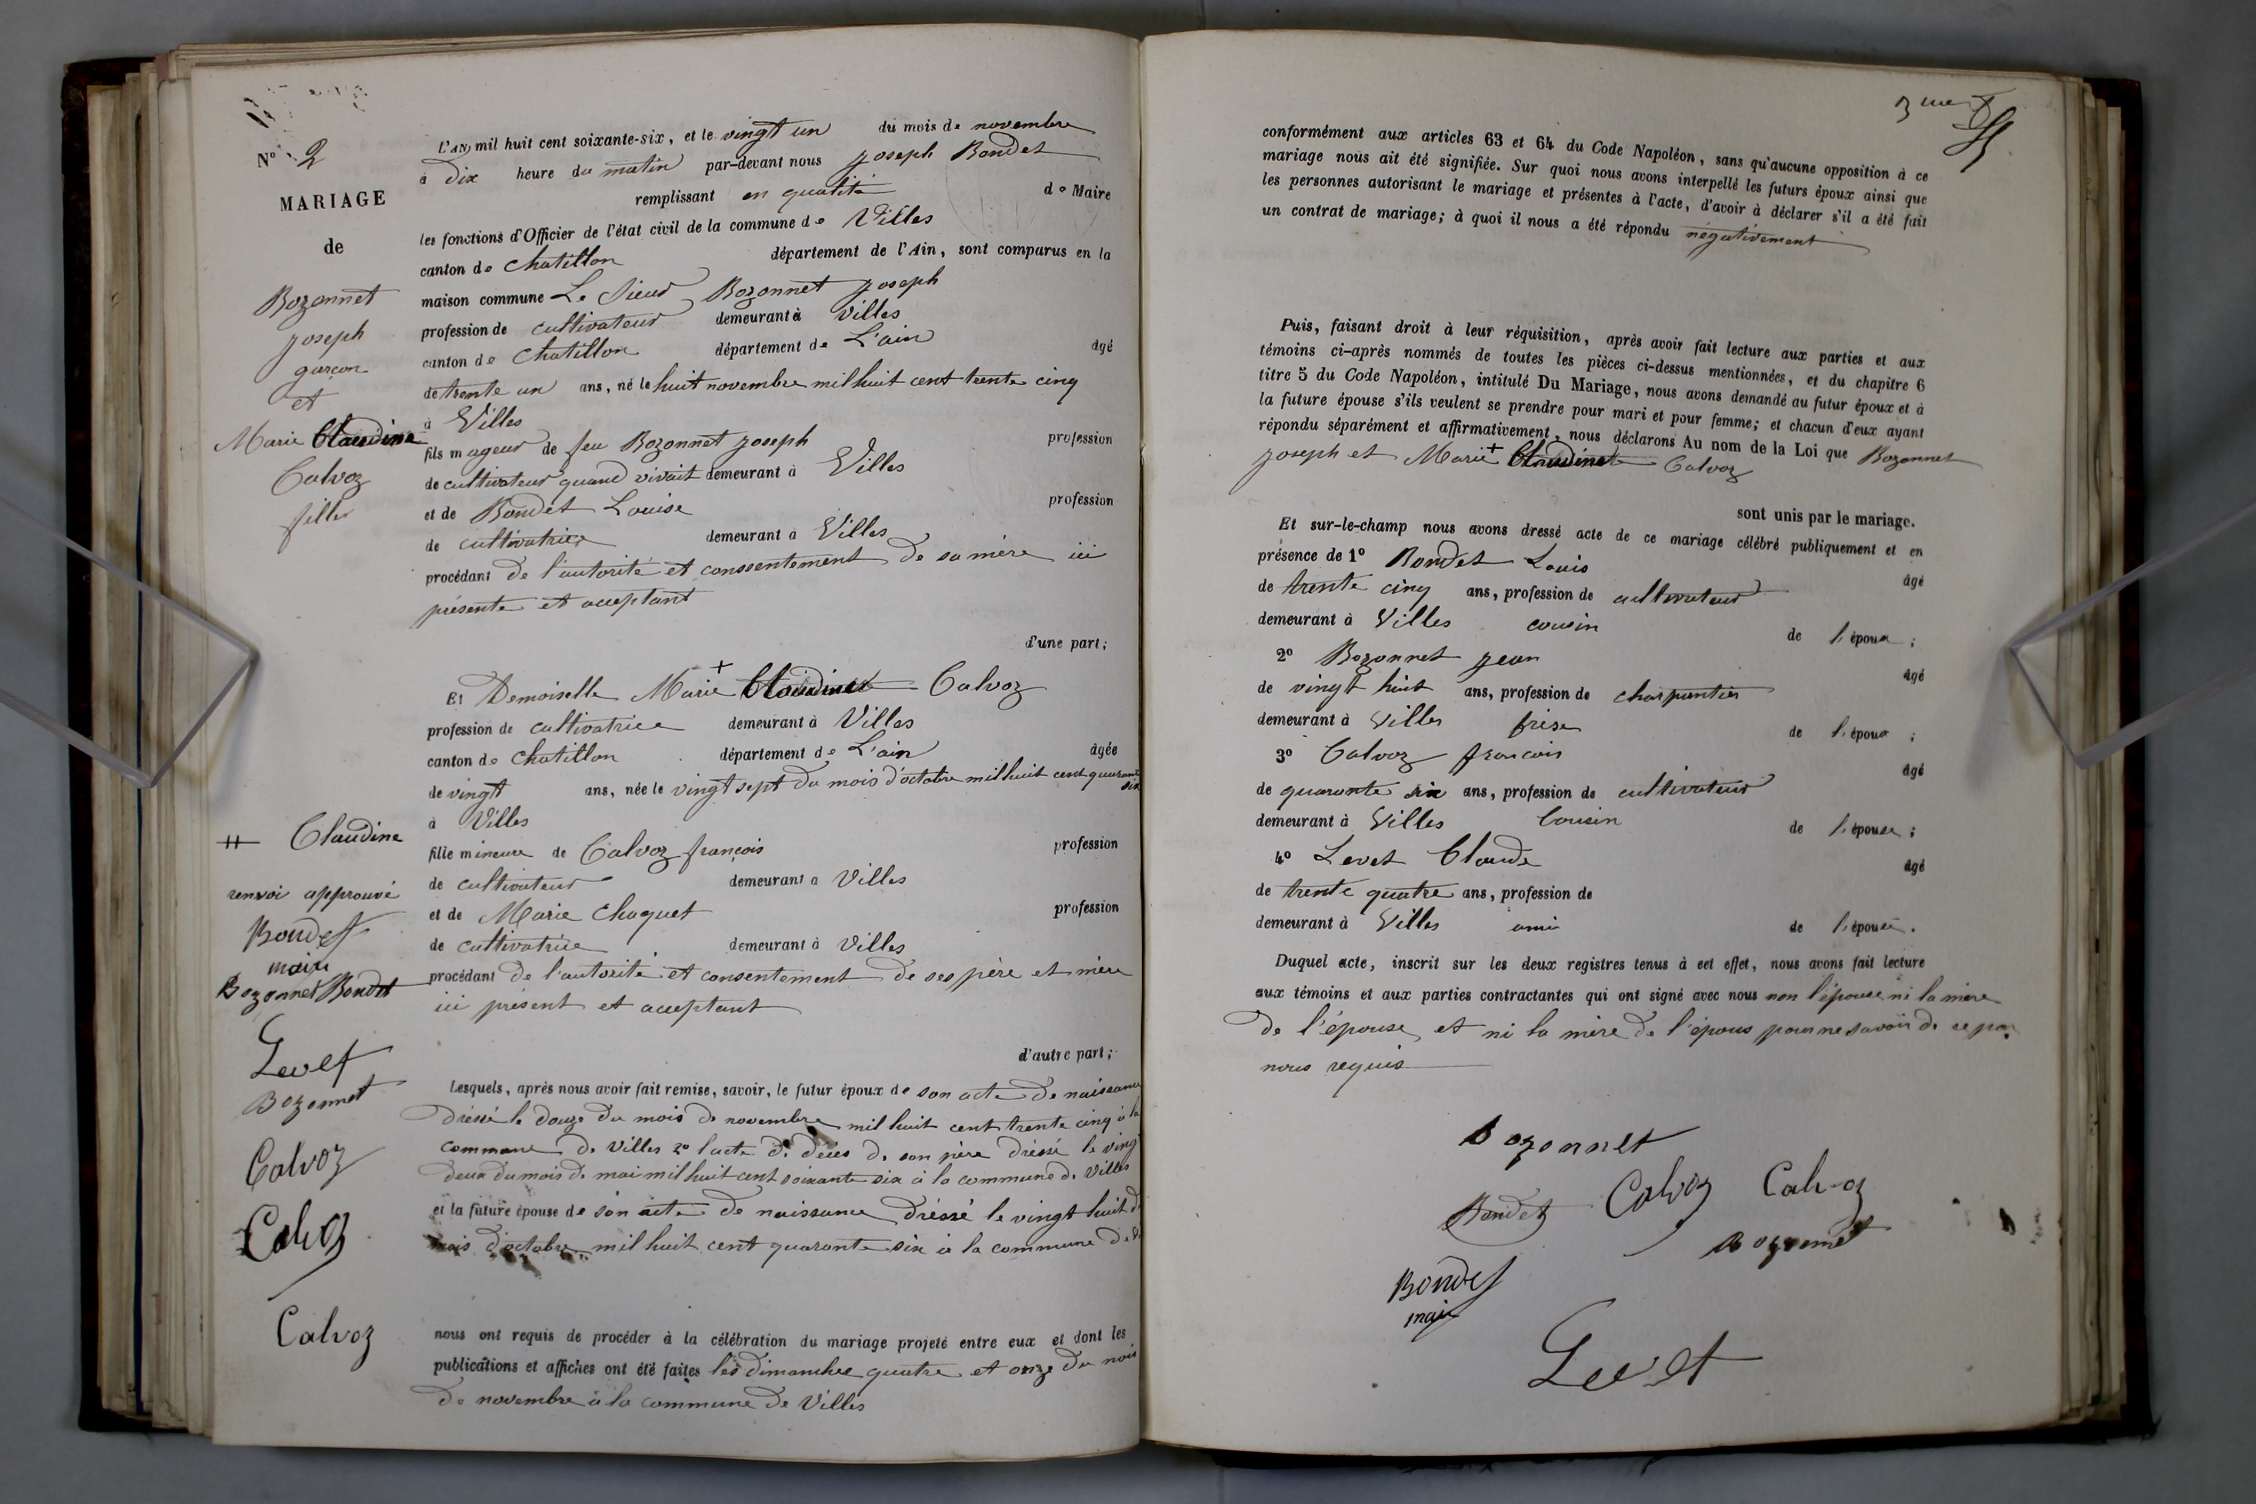 N° 2
MARIAGE
de
Bozonnet
joseph
garçon
et
Marie Claudine
Calvoz
fille
L'AN mil huit cent soixante-six, et le vingt un du mois de novembre
à dix heure du matin par-devant nous joseph Bondet
remplissant en qualité de Maire
les fonctions d'Officier de l'état civil de la commune de Villes
canton de Chatillon département de l'Ain, sont comparus en la
maison commune Le Sieur Bozonnet joseph
profession de cultivateur demeurant à Villes
canton de Chatillon département de L'ain âgé
de trente un ans, né le huit novembre mil huit cent trente cinq
à Villes
fils mageur de feu Bozonnet joseph profession
de cultivateur quand vivait demeurant à Villes
et de Bondet Louise profession
de cultivatrice demeurant à Villes
procédant de l'autorité et conssentement de sa mère ici
présente et acceptant
d'une part;
Et Demoiselle Marie + Claudine Calvoz
profession de cultivatrice demeurant à Villes
canton de Chatillon département de L'ain âgée
de vingt ans, née le vingt sept du mois d'octobre mil huit cent quarante
six
à Villes
fille mineure de Calvoz françois profession
de cultivateur demeurant à Villes
et de Marie Choquet profession
de cultivatrice demeurant à Villes
procédant de l'autorité et consentement de ses père et mère
ici présent et acceptant
d'autre part;
Lesquels, après nous avoir fait remise, savoir, le futur époux de son acte de naissance
dréssé le douze du mois de novembre mil huit cent trente cinq à la
commune de Villes 2° l'acte de décès de son père dréssé le vingt
deux du mois de mai mil huit cent soixante six à la commune de Villes
et la future épouse de son acte de naissance dréssé le vingt huit du
mois d'octobre mil huit cent quarante six à la commune de
nous ont requis de procéder à la célébration du mariage projeté entre eux et dont les
publications et affiches ont été faites les dimanche quatre et onze du mois
de novembre à la commune de Villes
++ Claudine
renvoi approuvé
Bondet
maire
Bozonnet Bondet
Levet
Bozonnet
Calvoz
Calvoz
Calvoz
conformément aux articles 63 et 64 du Code Napoléon, sans qu'aucune opposition à ce
mariage nous ait été signifiée. Sur quoi nous avons interpellé les futurs époux ainsi que
les personnes autorisant le mariage et présentes à l'acte, d'avoir à déclarer s'il a été fait
un contrat de mariage; à quoi il nous a été répondu négativement
Puis, faisant droit à leur réquisition, après avoir fait lecture aux parties et aux
témoins ci-après nommés de toutes les pièces ci-dessus mentionnées, et du chapitre 6
titre 5 du Code Napoléon, intitulé Du Mariage, nous avons demandé au futur époux et à
la future épouse s'ils veulent se prendre pour mari et pour femme; et chacun d'eux ayant
répondu séparément et affirmativement, nous déclarons Au nom de la Loi que Bozonnet
joseph et Marie + Claudine Calvoz
sont unis par le mariage.
Et sur-le-champ nous avons dressé acte de ce mariage célébré publiquement et en
présence de 1° Bondet Louis âgé
de trente cinq ans, profession de cultivateur
demeurant à Villes cousin de l'époux;
2° Bozonnet jean âgé
de vingt huit ans, profession de charpentier
demeurant à Villes frère de l'époux;
3° Calvoz françois âgé
de quarante six ans, profession de cultivateur
demeurant à Villes Cousin de l'épouse;
4° Levet Claude âgé
de trente quatre ans, profession de
demeurant à Villes ami de l'épouse.
Duquel acte, inscrit sur les deux registres tenus à cet effet, nous avons fait lecture
aux témoins et aux parties contractantes qui ont signé avec nous non l'épouse ni la mère
de l'épouse et ni la mère de l'épous pour ne savoir de ce par
nous requis
Bozonnet
Bondet Calvoz Calvoz
Bozonnet
Bondet
maire
Levet